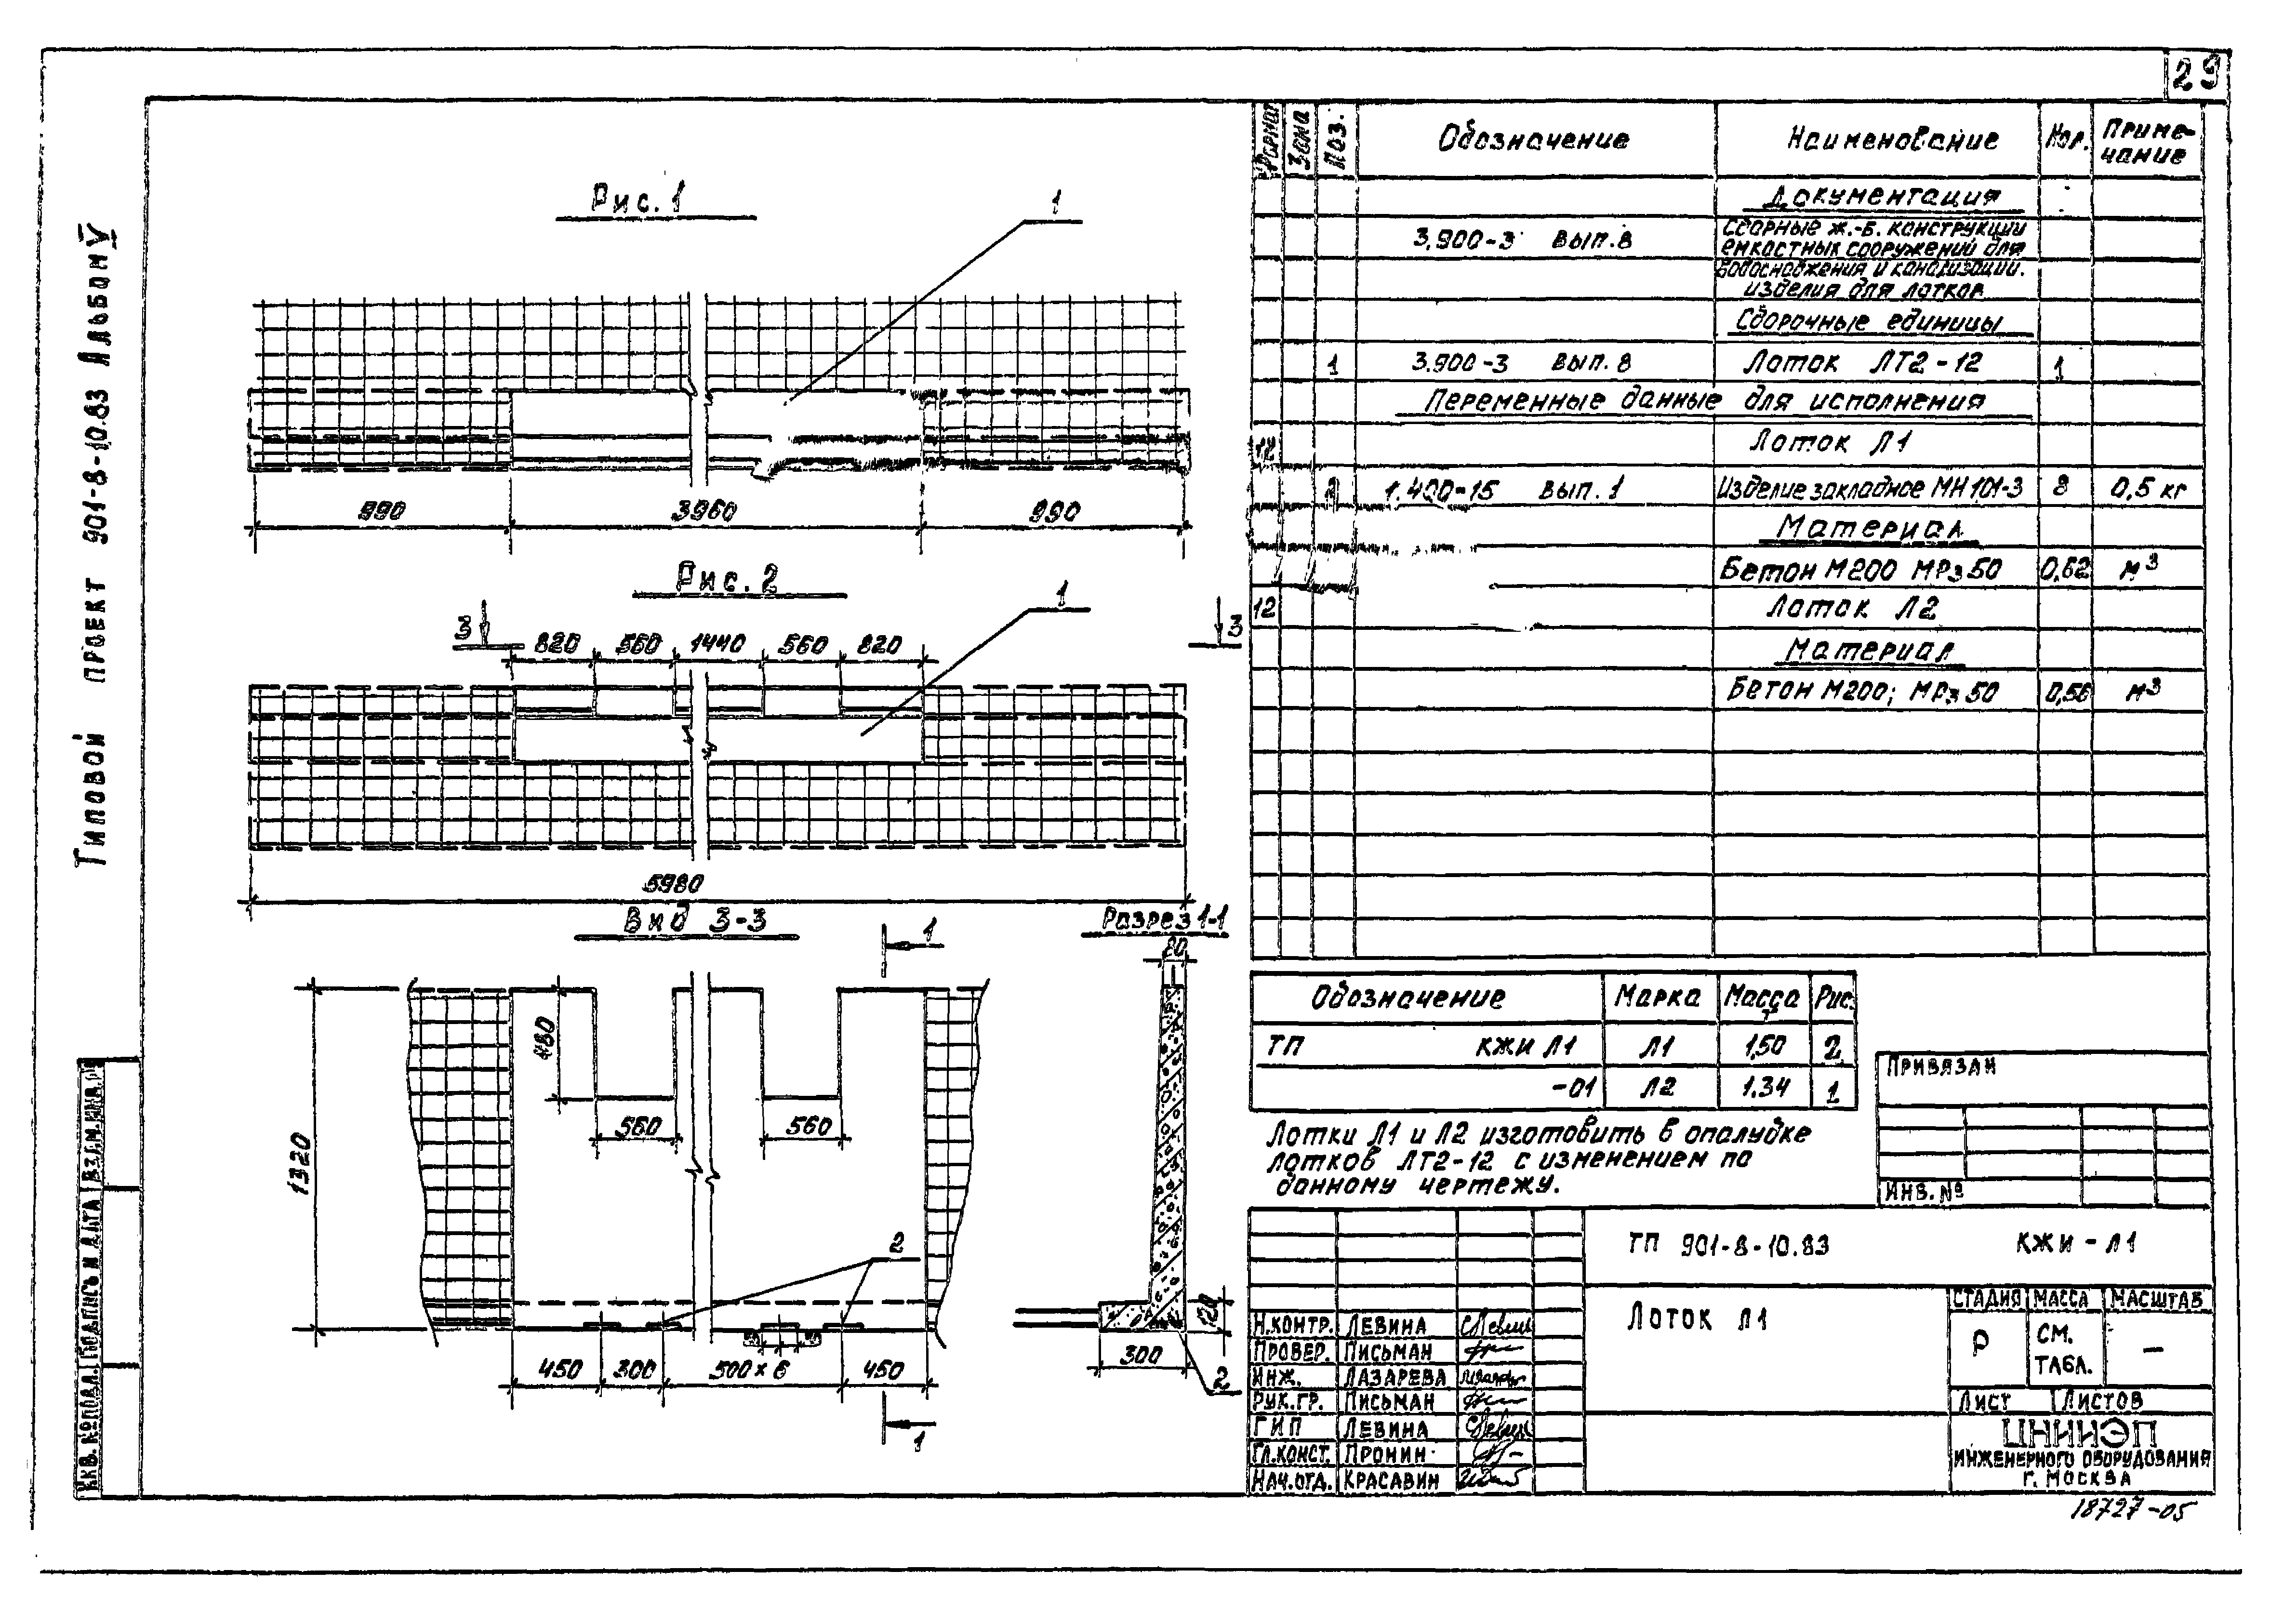 29
Типовой проект 901-8-10.83 Альбом V
Рис. 1
1
990 3960 990
Рис. 2
1
3 3
820 560 1440 560 820
5980
Вид 3-3
Разрез 1-1
1
80
480
560 560
1320
2
450 300 500×6 450
1
120
300
2
Формат Зона Поз. Обозначение Наименование Кол. Приме-
чание
Документация
3.900-3 вып. 8 Сборные ж.-б. конструкции
емкостных сооружений для
водоснабжения и канализации.
изделия для лотков
Сборочные единицы
1 3.900-3 вып. 8 Лоток ЛТ2-12 1
Переменные данные для исполнения
12 Лоток Л1
2 1.400-15 вып. 1 Изделие закладное МН101-3 8 0,5 кг
Материал
Бетон М200 МРз50 0,62 м3
12 Лоток Л2
Материал
Бетон М200; МРз50 0,56 м3
Обозначение Марка Масса т Рис.
ТП КЖИ Л1 Л1 1,50 2
-01 Л2 1.34 1
Лотки Л1 и Л2 изготовить в опалубке
лотков ЛТ2-12 с изменением по
данному чертежу.
Привязан
Инв. №
ТП 901-8-10.83 КЖИ-Л1
Лоток Л1
Стадия Масса Масштаб
Р см. табл. —
Лист Листов
Н.контр. Левина
Провер. Письман
Инж. Лазарева
Рук.гр. Письман
ГИП Левина
Гл.конст. Пронин
Нач.отд. Красавин
ЦНИИЭП
инженерного оборудования
г. Москва
18727-05
Инв. № подл. Подпись и дата Взам. инв. №